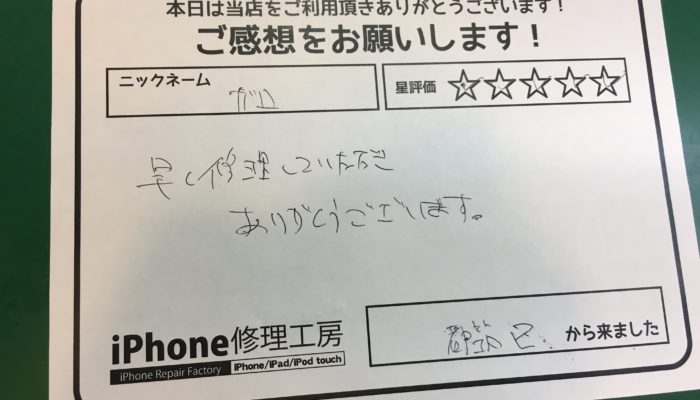 本日は当店をご利用頂きありがとうございます!
ご感想をお願いします!
ニックネーム
ガロ
星評価 ☆☆☆☆☆
早く修理していただき
ありがとうございます。
iPhone修理工房
iPhone Repair Factory iPhone/iPad/iPod touch
区 から来ました